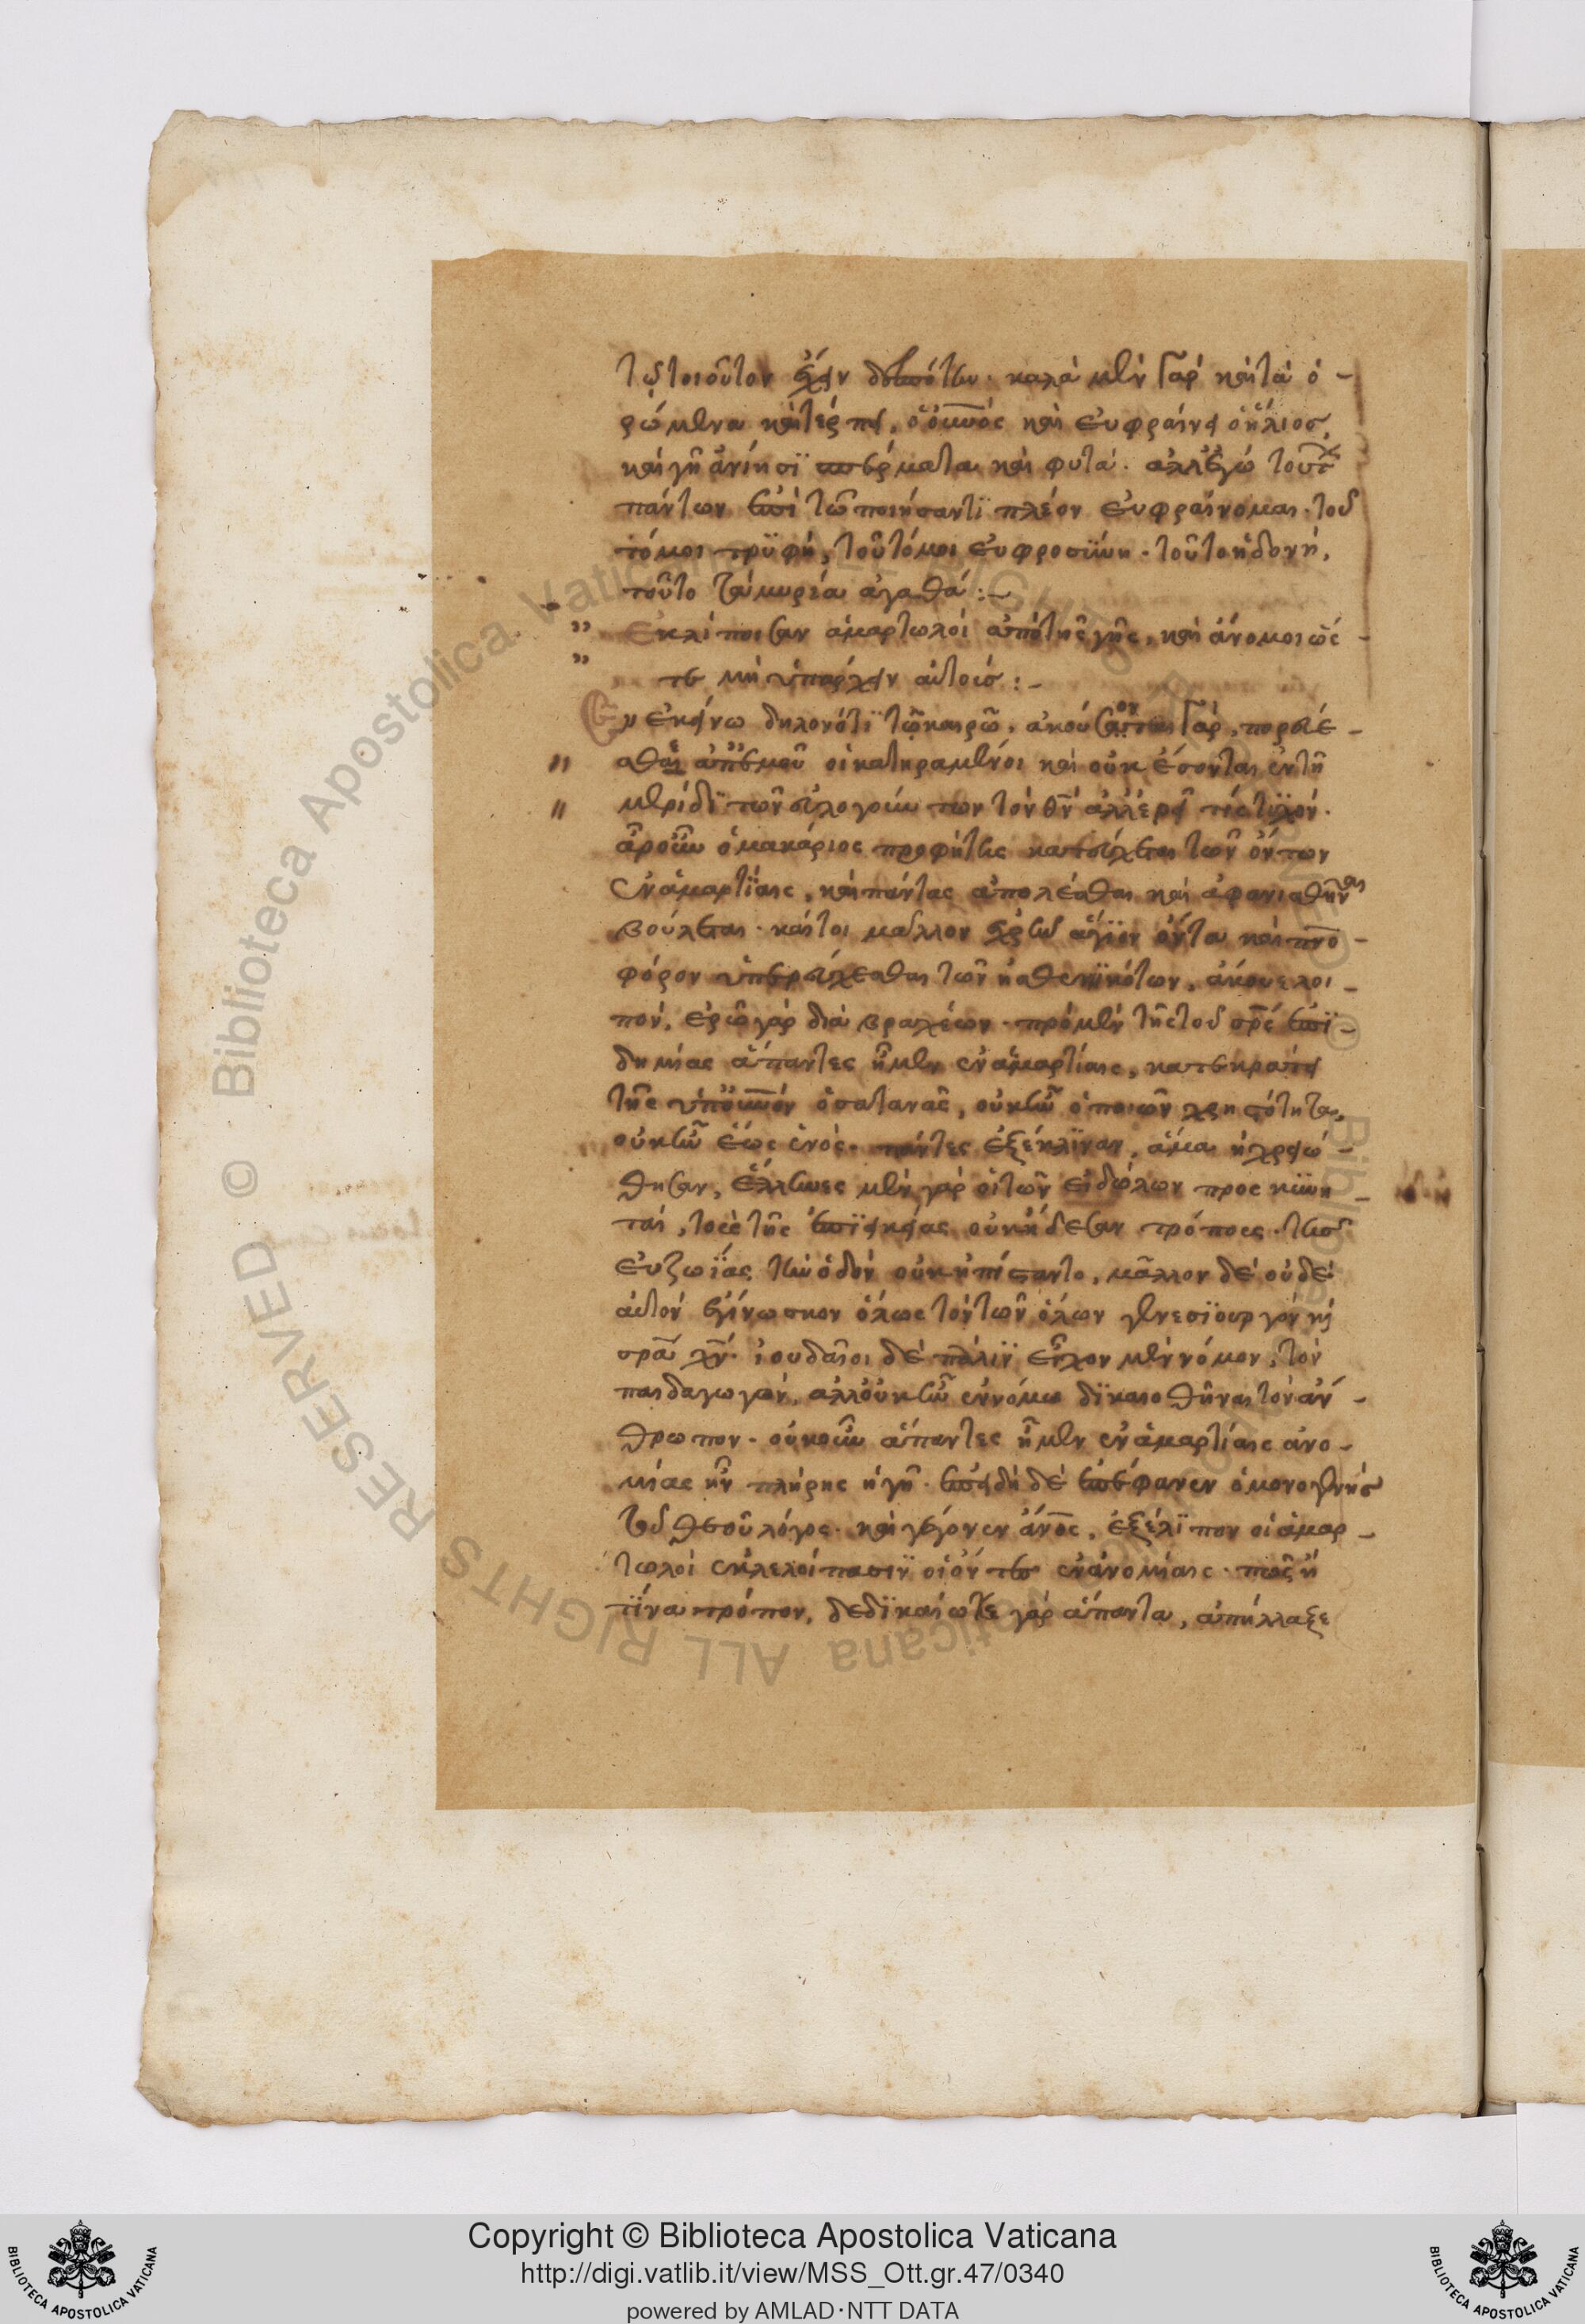 τῶ τοιοῦτον ἔχειν δεσπότην· καλὰ μὲν γὰρ καὶ τὰ ὁ-
ρώμενα καὶ τέρπει, ὁ οὐνὸς καὶ εὐφραίνει ὁ ἥλιος,
καὶ γῆ ἀνίησϊ σπέρματα καὶ φυτά. ἀλλ' ἐγὼ τούτ
πάντων ἐπὶ τῶ ποιήσαντϊ πλέον εὐφραίνομαι· τοῦ
τό μοι τρϋφή, τοῦτό μοι εὐφροσϋνη· τοῦτο ἡδονή,
τοῦτο τὰ μυρία ἀγαθά:-
" Ἐκλίποισαν ἁμαρτωλοὶ ἀπὸ τῆς γῆς, καὶ ἄνομοι ὥς-
" τε μὴ ὑπάρχειν αὐτούς:-
Ἐν ἐκείνω δηλονότϊ τῶ καιρῶ, ἀκούσονται γὰρ, πορεύε-
" σθαι ἀπ' ἐμοῦ οἱ κατηραμένοι καὶ οὐκ ἔσονται ἐν τῆ
" μερίδϊ τῶν εὐλογούντων τὸν θν̄ ἀλλ' ἐρεῖ τίς τϋχόν.
ἆρ' οὖν ὁ μακάριος προφήτης κατεύχεται τῶν ὄντων
ἐν ἁμαρτίαις, καὶ πάντας ἀπολέσθαι καὶ ἀφανισθῆναι
βούλεται· καίτοι μᾶλλον ἐχρῆν ἅγϊον ὄντα καὶ πνο-
φόρον ὑπερεύχεσθαι τῶν ἠσθενϊκότων, ἄκουε λοι-
πόν, ἐρῶ γὰρ διὰ βραχέων· πρὸ μὲν τῆς τοῦ σρ̄ς ἐπϊ-
δημίας ἅπαντες ἦμεν ἐν ἁμαρτίαις, κατεκράτει
τῆς ὑπ' οὐνὸν ὁ σατανᾶς, οὐκ ἦν ὁ ποιῶν χρηστότητα,
οὐκ ἦν ἕως ἑνός· πάντες ἐξέκλϊναν, ἅμα ἠχρειώ-
θησαν, ἕλληνες μὲν γὰρ οἱ τῶν εἰδώλων προσκϋνη-
ταὶ, τοὺς τῆς ἐπϊεικείας οὐκ ἤδεσαν τρόπους· τῆς
εὐζωΐας τὴν ὁδὸν οὐκ ἠπίσταντο, μᾶλλον δὲ οὐδὲ
αὐτὸν ἐγίνωσκον ὅλως τὸν τῶν ὅλων γενεσϊουργὸν κὶ
σρ̄α χν̄. ἰουδαῖοι δὲ πάλϊν εἶχον μὲν νόμον, τὸν
παιδαγωγὸν, ἀλλ' οὐκ ἦν ἐν νόμω δϊκαιοθῆναι τὸν ἄν-
θρωπον· οὐκοῦν ἅπαντες ἦμεν ἐν ἁμαρτίαις ἀνο-
μίας ἦν πλήρης ἡ γῆ· ἐπειδὴ δὲ ἐπέφανεν ὁ μονογενὴς
τοῦ θεοῦ λόγος· καὶ γέγονεν ἄνος, ἐξέλϊπον οἱ ἁμαρ-
τωλοὶ ἐκλελοίπασϊν οἱ ὄντες ἐν ἀνομίαις· πῶς ἢ
τίνα τρόπον, δεδϊκαίωκε γὰρ ἅπαντα, ἀπήλλαξε
Copyright © Biblioteca Apostolica Vaticana
http://digi.vatlib.it/view/MSS_Ott.gr.47/0340
powered by AMLAD·NTT DATA
BIBLIOTECA APOSTOLICA VATICANA
BIBLIOTECA APOSTOLICA VATICANA
Biblioteca Apostolica Vaticana ALL RIGHTS RESERVED ©